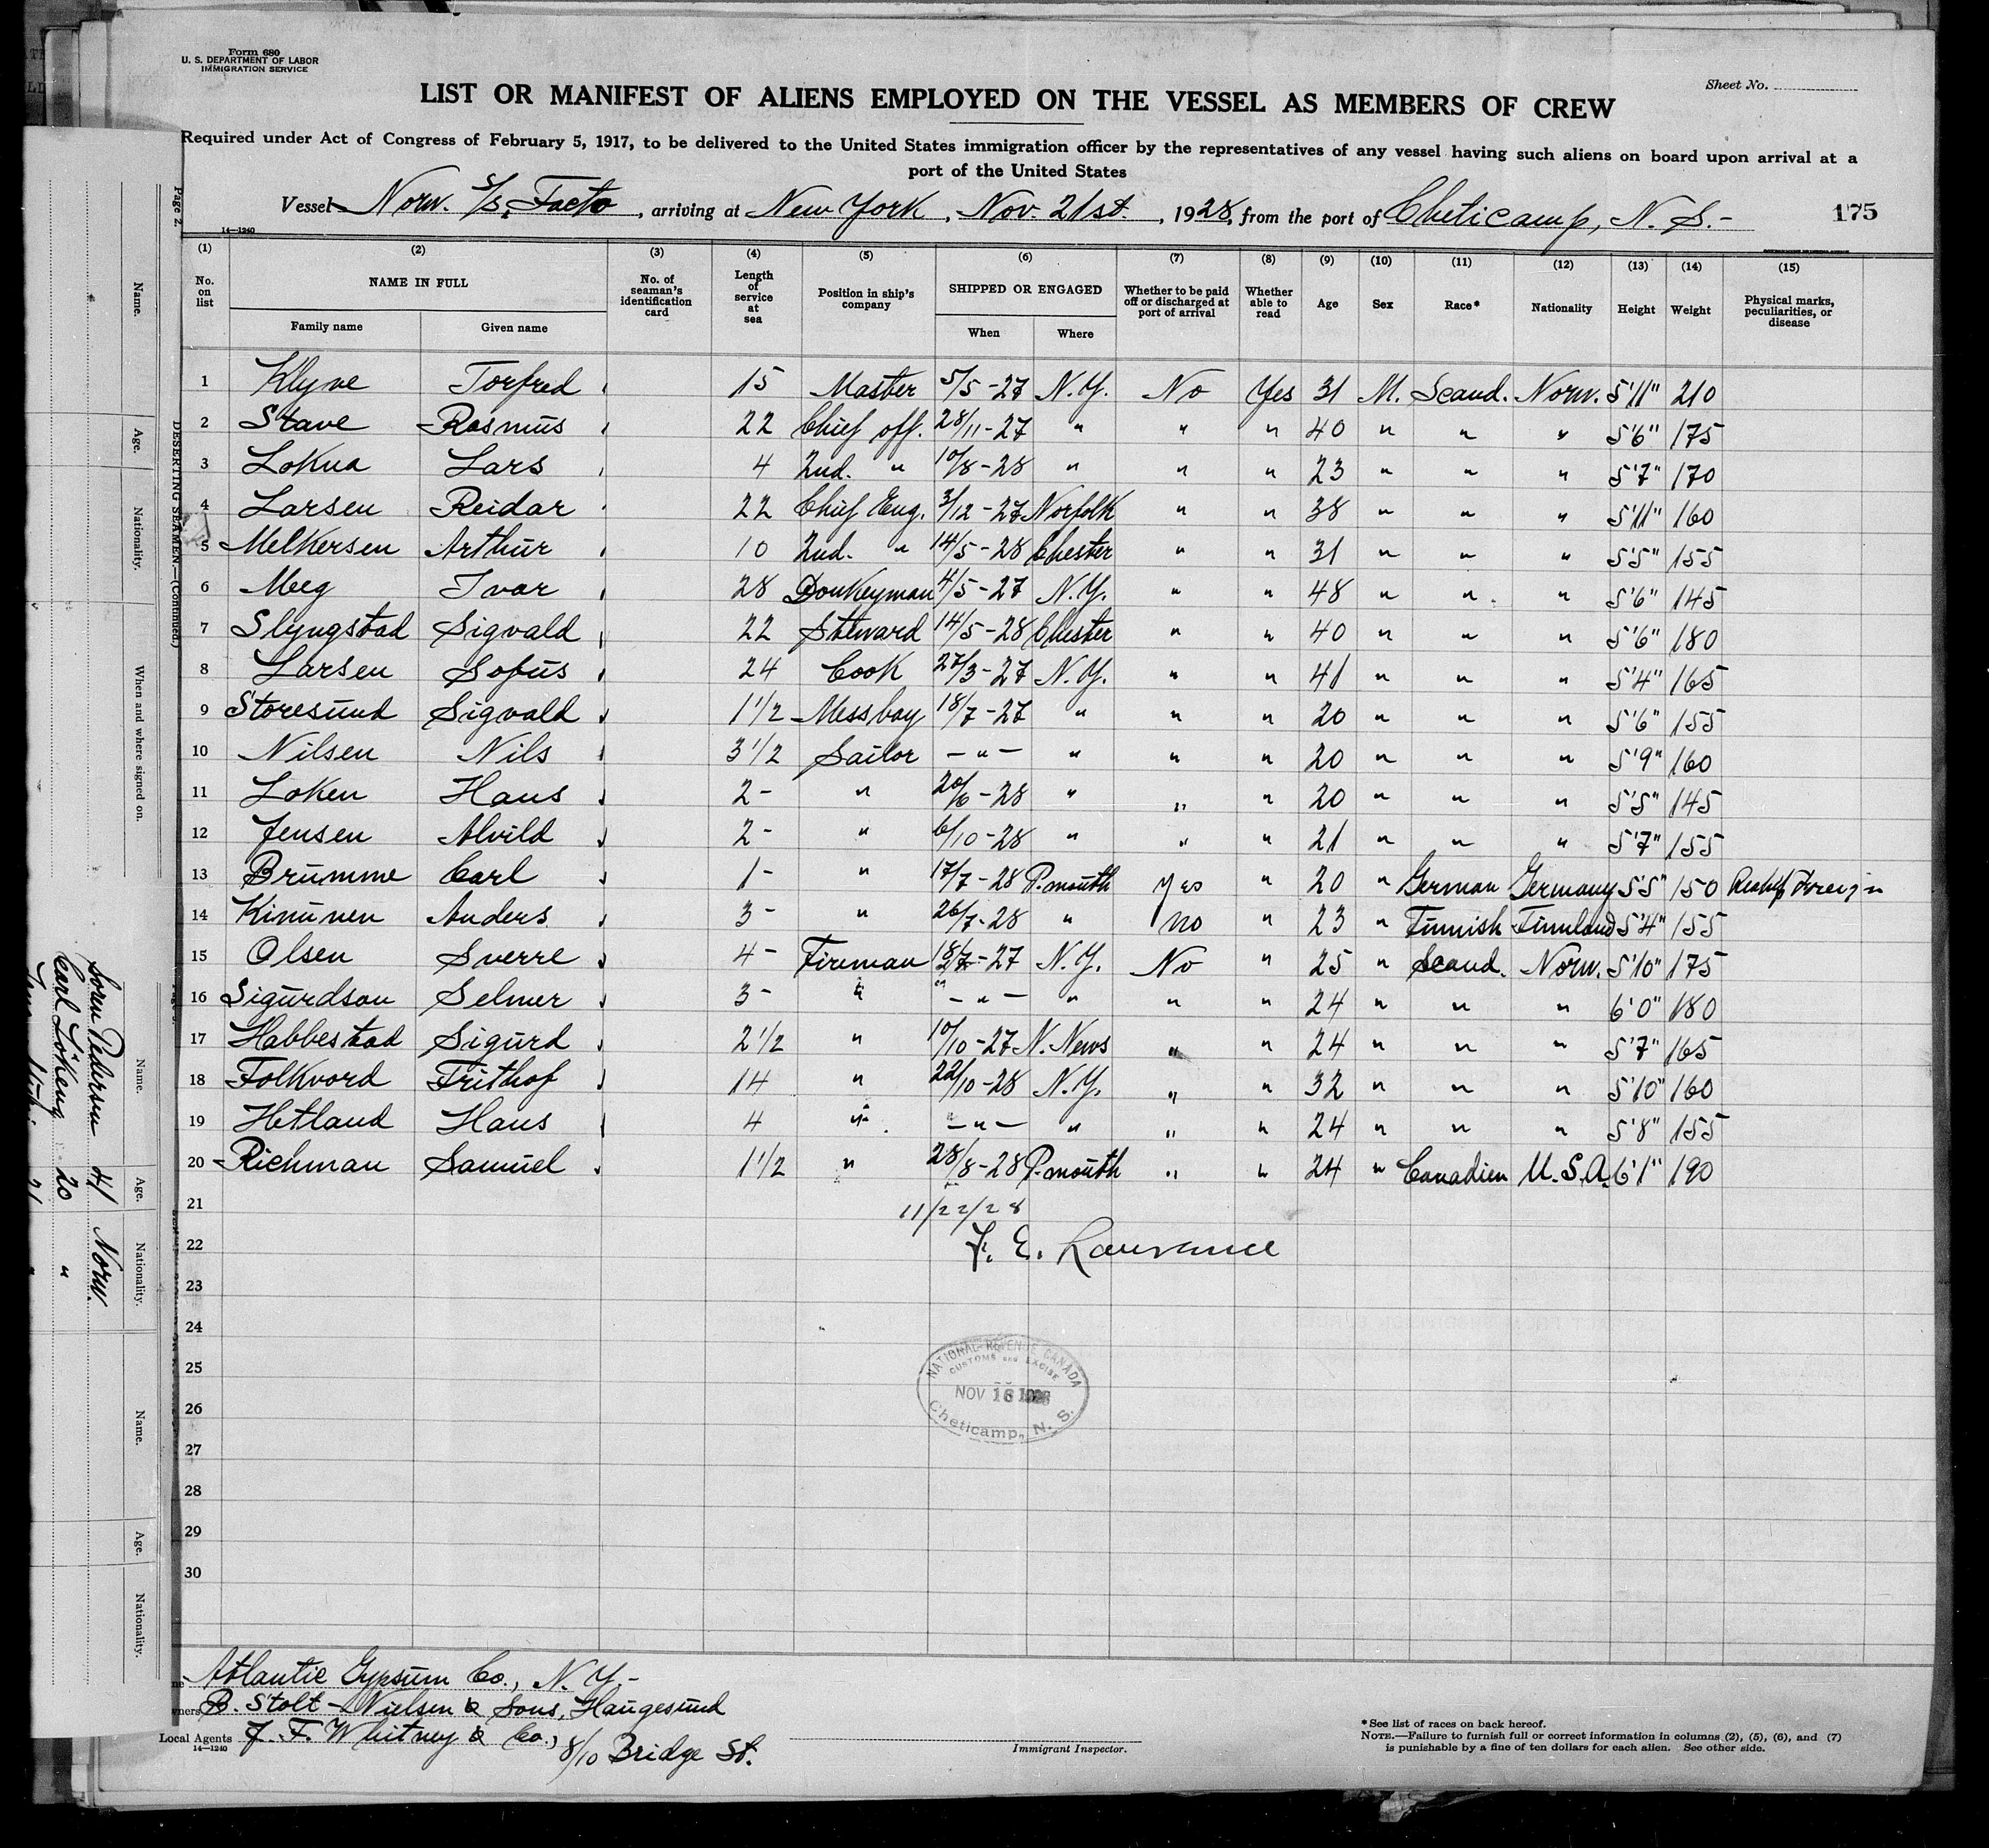 Form 680
U. S. DEPARTMENT OF LABOR
IMMIGRATION SERVICE
Sheet No.
LIST OR MANIFEST OF ALIENS EMPLOYED ON THE VESSEL AS MEMBERS OF CREW
Required under Act of Congress of February 5, 1917, to be delivered to the United States immigration officer by the representatives of any vessel having such aliens on board upon arrival at a
port of the United States
Vessel Norw. S/S. Facto, arriving at New York, Nov. 21st., 1928, from the port of Cheticamp, N. S.- 175
14—1240
(1) (2) (3) (4) (5) (6) (7) (8) (9) (10) (11) (12) (13) (14) (15)
No. on list NAME IN FULL No. of seaman's identification card Length of service at sea Position in ship's company SHIPPED OR ENGAGED Whether to be paid off or discharged at port of arrival Whether able to read Age Sex Race* Nationality Height Weight Physical marks, peculiarities, or disease
Family name Given name When Where
1 Klyve Torfred 15 Master 5/5-27 N.Y. No Yes 31 M. Scand. Norw. 5'11" 210
2 Stave Rasmus 22 Chief off. 28/11-27 " " " 40 " " " 5'6" 175
3 Lokna Lars 4 2nd. " 10/8-28 " " " 23 " " " 5'7" 170
4 Larsen Reidar 22 Chief Eng. 3/12-27 Norfolk " " 38 " " " 5'11" 160
5 Melkersen Arthur 10 2nd. " 14/5-28 Chester " " 31 " " " 5'5" 155
6 Meeg Ivar 28 Donkeyman 4/5-27 N.Y. " " 48 " " " 5'6" 145
7 Slyngstad Sigvald 22 Steward 14/5-28 Chester " " 40 " " " 5'6" 180
8 Larsen Sofus 24 Cook 27/3-27 N.Y. " " 41 " " " 5'4" 165
9 Storesund Sigvald 1 1/2 Messboy 18/7-27 " " " 20 " " " 5'6" 155
10 Nilsen Nils 3 1/2 Sailor -"- " " " 20 " " " 5'9" 160
11 Loken Hans 2- " 20/6-28 " " " 20 " " " 5'5" 145
12 Jensen Alvild 2- " 6/10-28 " " " 21 " " " 5'7" 155
13 Brumme Carl 1- " 17/7-28 P.mouth Yes " 20 " German Germany 5'5" 150 Foreign
14 Kinunen Anders. 3- " 26/7-28 " No " 23 " Finnish Finnland 5'4" 155
15 Olsen Sverre 4- Fireman 18/7-27 N.Y. No " 25 " Scand. Norw. 5'10" 175
16 Sigurdson Selmer 3- " -"- " " " 24 " " " 6'0" 180
17 Habbestad Sigurd 2 1/2 " 10/10-27 N. News " " 24 " " " 5'7" 165
18 Folkvord Frithof 14 " 22/10-28 N.Y. " " 32 " " " 5'10" 160
19 Hetland Hans 4 " -"- " " " 24 " " " 5'8" 155
20 Richman Samuel 1 1/2 " 28/8-28 P.mouth " " 24 " Canadien U.S.A. 6'1" 190
21 11/22/28
22 F. E. Lawrance
23
24
25
26
27
28
29
30
NATIONAL REVENUE CANADA
CUSTOMS AND EXCISE
NOV 16 1928
Cheticamp, N. S.
Atlantic Gypsum Co., N.Y.-
B. Stolt-Nielsen & Sons, Haugesund
Local Agents J. F. Whitney & Co., 8/10 Bridge St.
14—1240
Immigrant Inspector.
*See list of races on back hereof.
NOTE.—Failure to furnish full or correct information in columns (2), (5), (6), and (7)
is punishable by a fine of ten dollars for each alien. See other side.
Page 2
DESERTING SEAMEN—(Continued.)
Name. Age. Nationality. When and where signed on. Name. Age. Nationality. Name. Age. Nationality.
Soren Pedersen 41 Norw.
Carl Lökeng 20 "